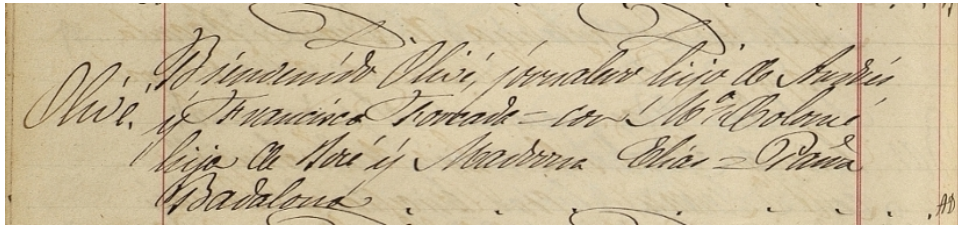 Olivé. Bienvenido Olivé, jornalero hijo de Andrés
y Francisca Forcada = con Mª Colomé
hija de José y Madrona Elias =
Badalona